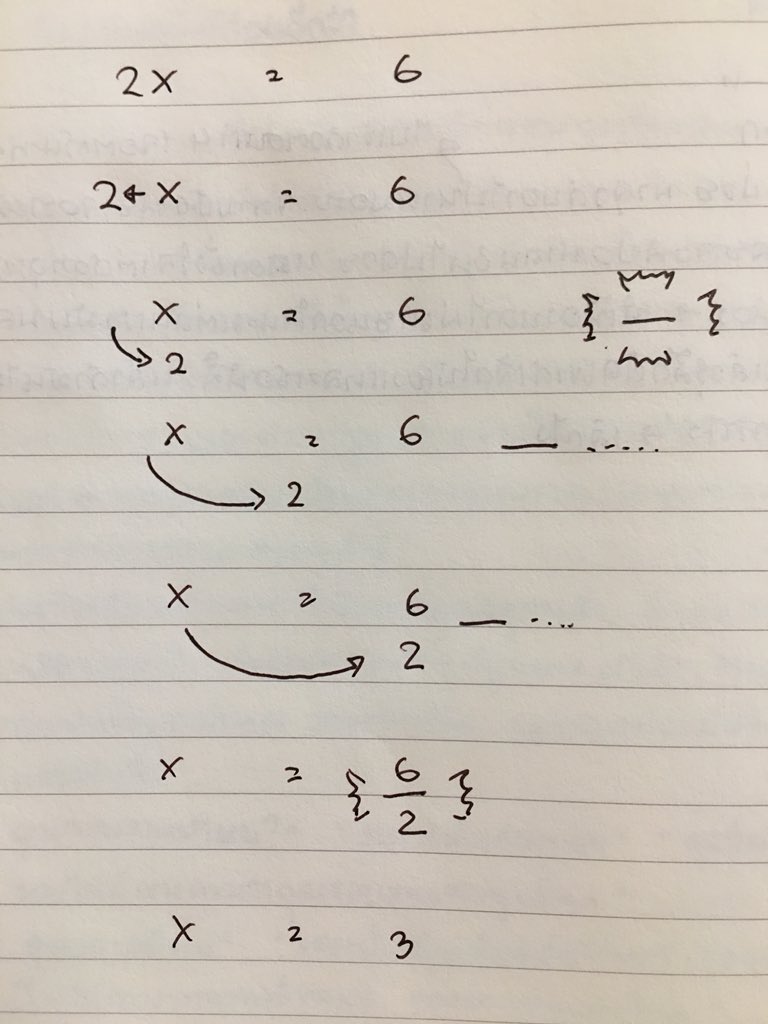 2x = 6
2← x = 6
x = 6 { — }
→ 2
x = 6 — .....
→ 2
x = 6 — ....
→ 2
x = { 6/2 }
x = 3